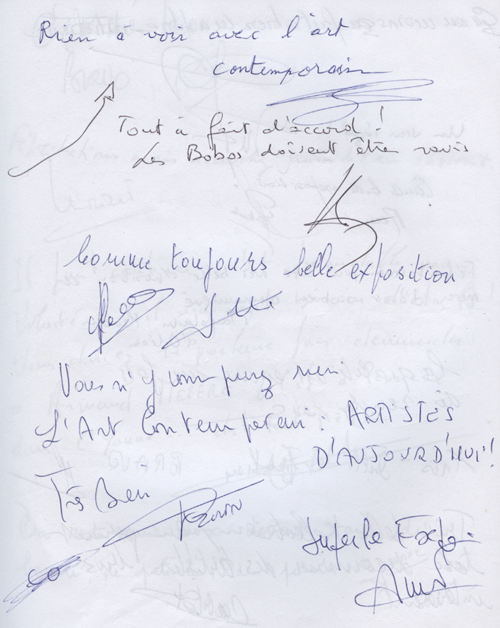 Rien à voir avec l'art
contemporain
Tout à fait d'accord !
Les Bobos doivent être ravis
Comme toujours belle exposition
Vous n'y comprenez rien.
L'Art Contemporain : ARTISTES
D'AUJOURD'HUI !!
Très Bien
Superbe Expo